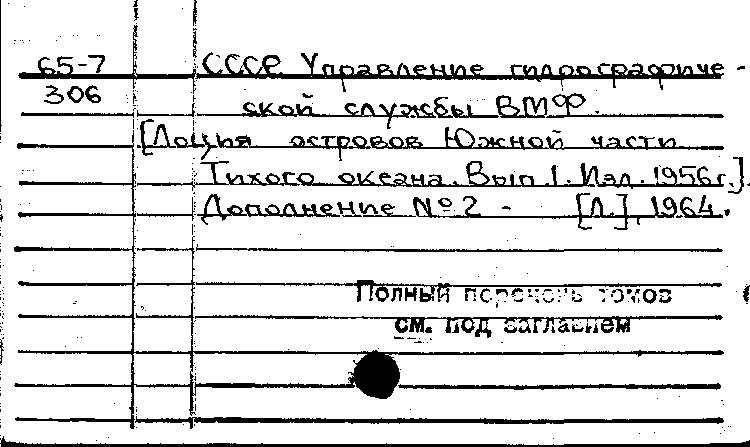 65-7 СССР Управление гидрографиче-
306 ской службы ВМФ.
[Лоция островов Южной части
Тихого океана. Вып 1. Изд. 1956г.].
Дополнение № 2 - [Л.], 1964.
Полный перечень томов
см. под заглавием